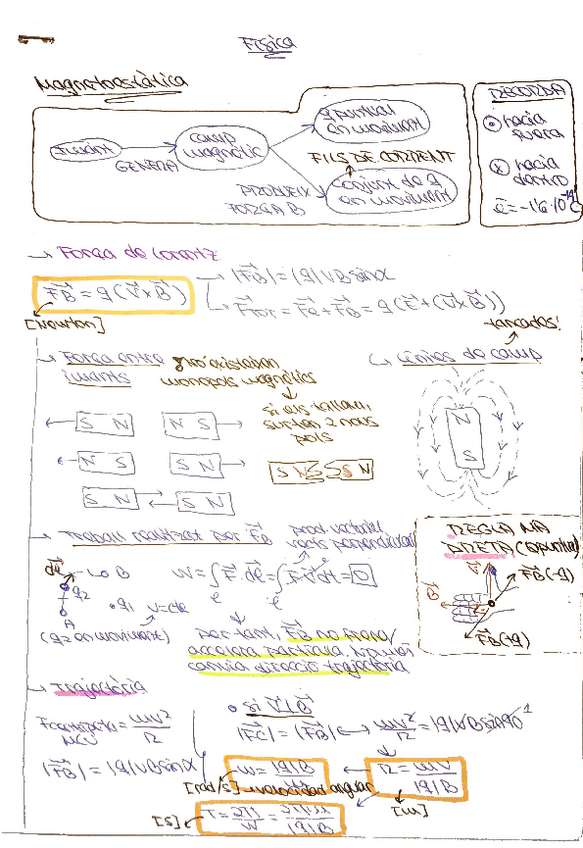 Física
Magnetostàtica
imant
GENERA
camp
magnètic
q puntual
en moviment
FILS DE CORRENT
PRODUEIX
FORÇA B
conjunt de q
en moviment
RECORDA
hacia
fuera
hacia
dentro
e̅ = -1'6·10⁻¹⁹C
→ Força de Lorentz
F⃗B = q(V⃗xB⃗)
[Newton]
→ |F⃗B| = |q|VBsinα
→ F⃗TOT = F⃗e + F⃗B = q(E⃗+(V⃗xB⃗))
→ Força entre
imants
no existeixen
monopols magnètics
si els tallem,
surten 2 nous
pols
S N N S
N S S N
S N S N
S N S S N
tancades!
→ Línies de camp
N
S
→ Treball realitzat per F⃗B
prod vectorial
vects perpendiculars
W = ∫F⃗·dl⃗ = ∫F⃗·V⃗dt = 0
dl⃗
B
q2
q1 v=cte
A
(q2 en moviment)
per tant, F⃗B no frena/
accelera partícula, només
canvia direcció trajectòria
REGLA MÀ
DRETA
V⃗
B⃗
F⃗B(-q)
F⃗B(+q)
→ Trajectòria
Fcentrípeta = mv²/R
MCU
|F⃗B| = |q|VBsinα
• si V⃗⊥B⃗
|F⃗C| = |F⃗B| → mv²/R = |q|VBsin90 1
R = mV/|q|B
[m]
W = |q|B/m
[rad/s] velocidad angular
T = 2π/W = 2πm/|q|B
[s]